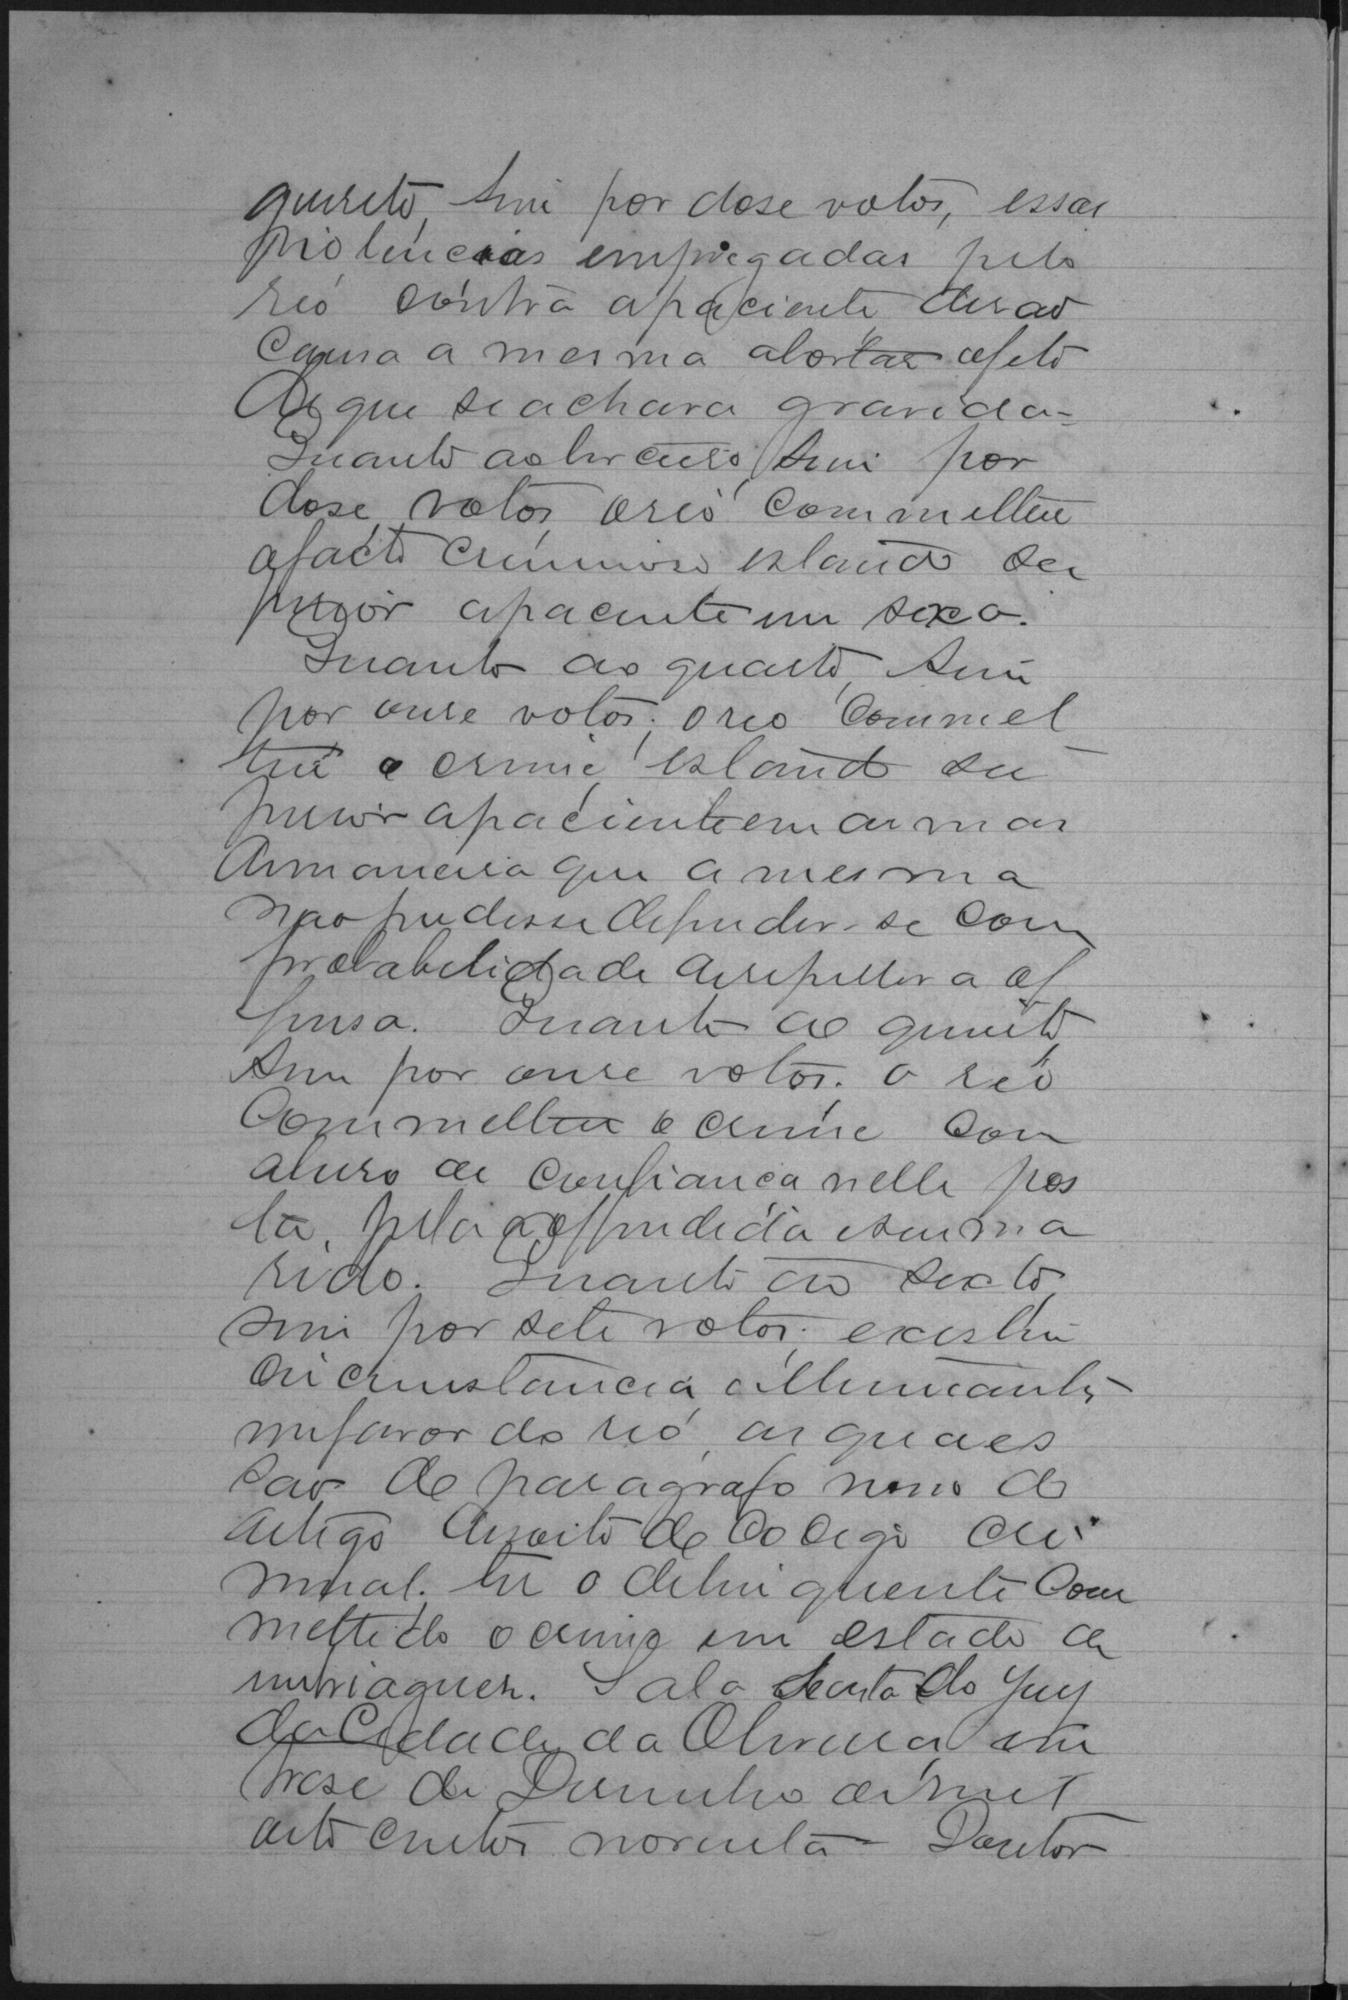 quesito, sim por dose votos, essas
violencias empregadas pelo
reo contra a paciente derao
causa a mesma abortar o feto
de que se achava gravida -
Quanto ao terceiro, sim por
dose votos, o reo commetteu
o facto criminoso, estando ser
a paciente em sexo.
Quanto ao quarto, sim
por onse votos; o reo commet
teu o crime, estando su
perior a paciente em armas
de maneira que a mesma
não pudesse defender-se com
probabelidade de repellir a of
fensa. Quanto ao quinto,
sim por onse votos. O reo
commetteu o crime com
abuso de confiança nelle pos
ta, pela offendida e seu ma
rido. Quanto ao sexto,
sim por sete votos; existem
circumstancia attenuantes
em favor do reo, as quaes
são de paragrafo nono do
artigo desoito do Codigo cri
minal. ter o delinquente com
mettido o crime em estado de
embriaguez. Sala Secreta do Jury
da Cidade da Oliveira, em
trese de Junho de mil
oito centos noventa - Doutor